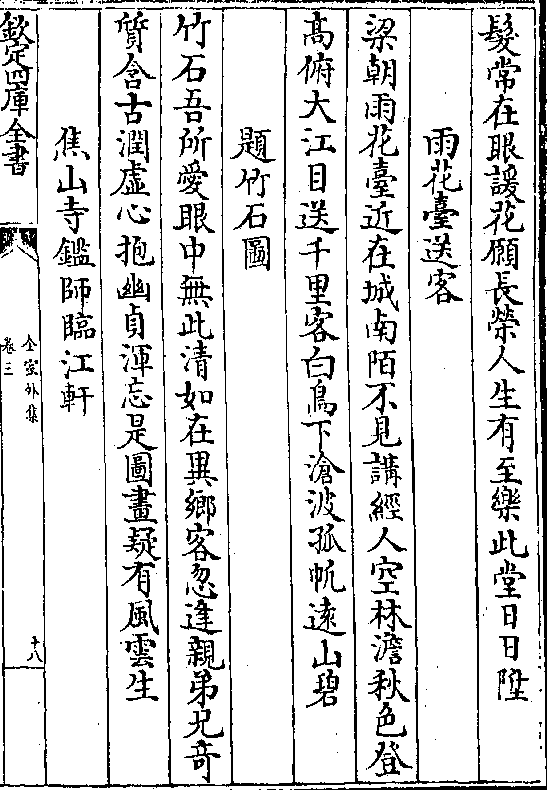 髮常在眼諼花願長榮人生有至樂此堂日日陞
雨花臺送客
梁朝雨花臺近在城南陌不見講經人空林澹秋色登
高俯大江目送千里客白鳥下滄波孤帆遠山碧
題竹石圖
竹石吾所愛眼中無此清如在異鄉客忽逢親弟兄奇
質含古潤虛心抱幽貞渾忘是圖畫疑有風雲生
焦山寺鑑師臨江軒
欽定四庫全書
全室外集
卷三
十八